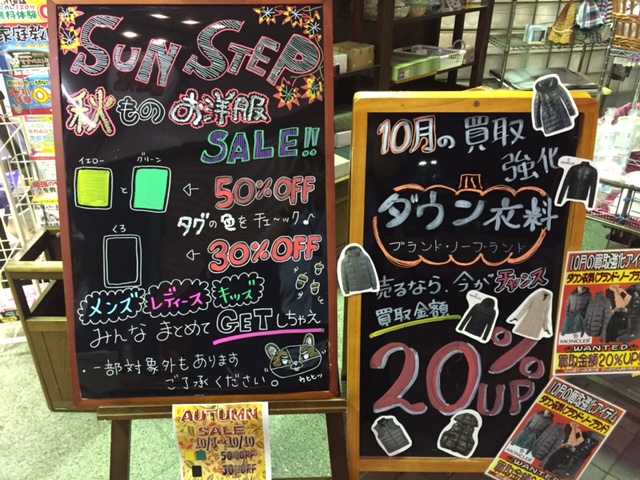 SUN STEP
秋もの お洋服
SALE!!
イエロー と グリーン
← 50%OFF
タグの色をチェ〜ック♪
くろ
← 30%OFF
メンズ レディース キッズ
みんな まとめて GETしちゃえ
・一部対象外もあります
ご了承ください。
AUTUMN
SALE
10/8〜10/10
50%OFF
30%OFF
10月の買取
強化
ダウン衣料
ブランド・ノーブランド
売るなら、今がチャンス
買取金額
20%UP
10月の買取強化アイテム
ダウン衣料(ブランド・ノーブランド)
MONCLER
WANTED
買取金額20%UP
10月の買取強化アイテム
ダウン衣料(ブランド・ノーブランド)
MONCLER
WANTED
買取金額20%UP